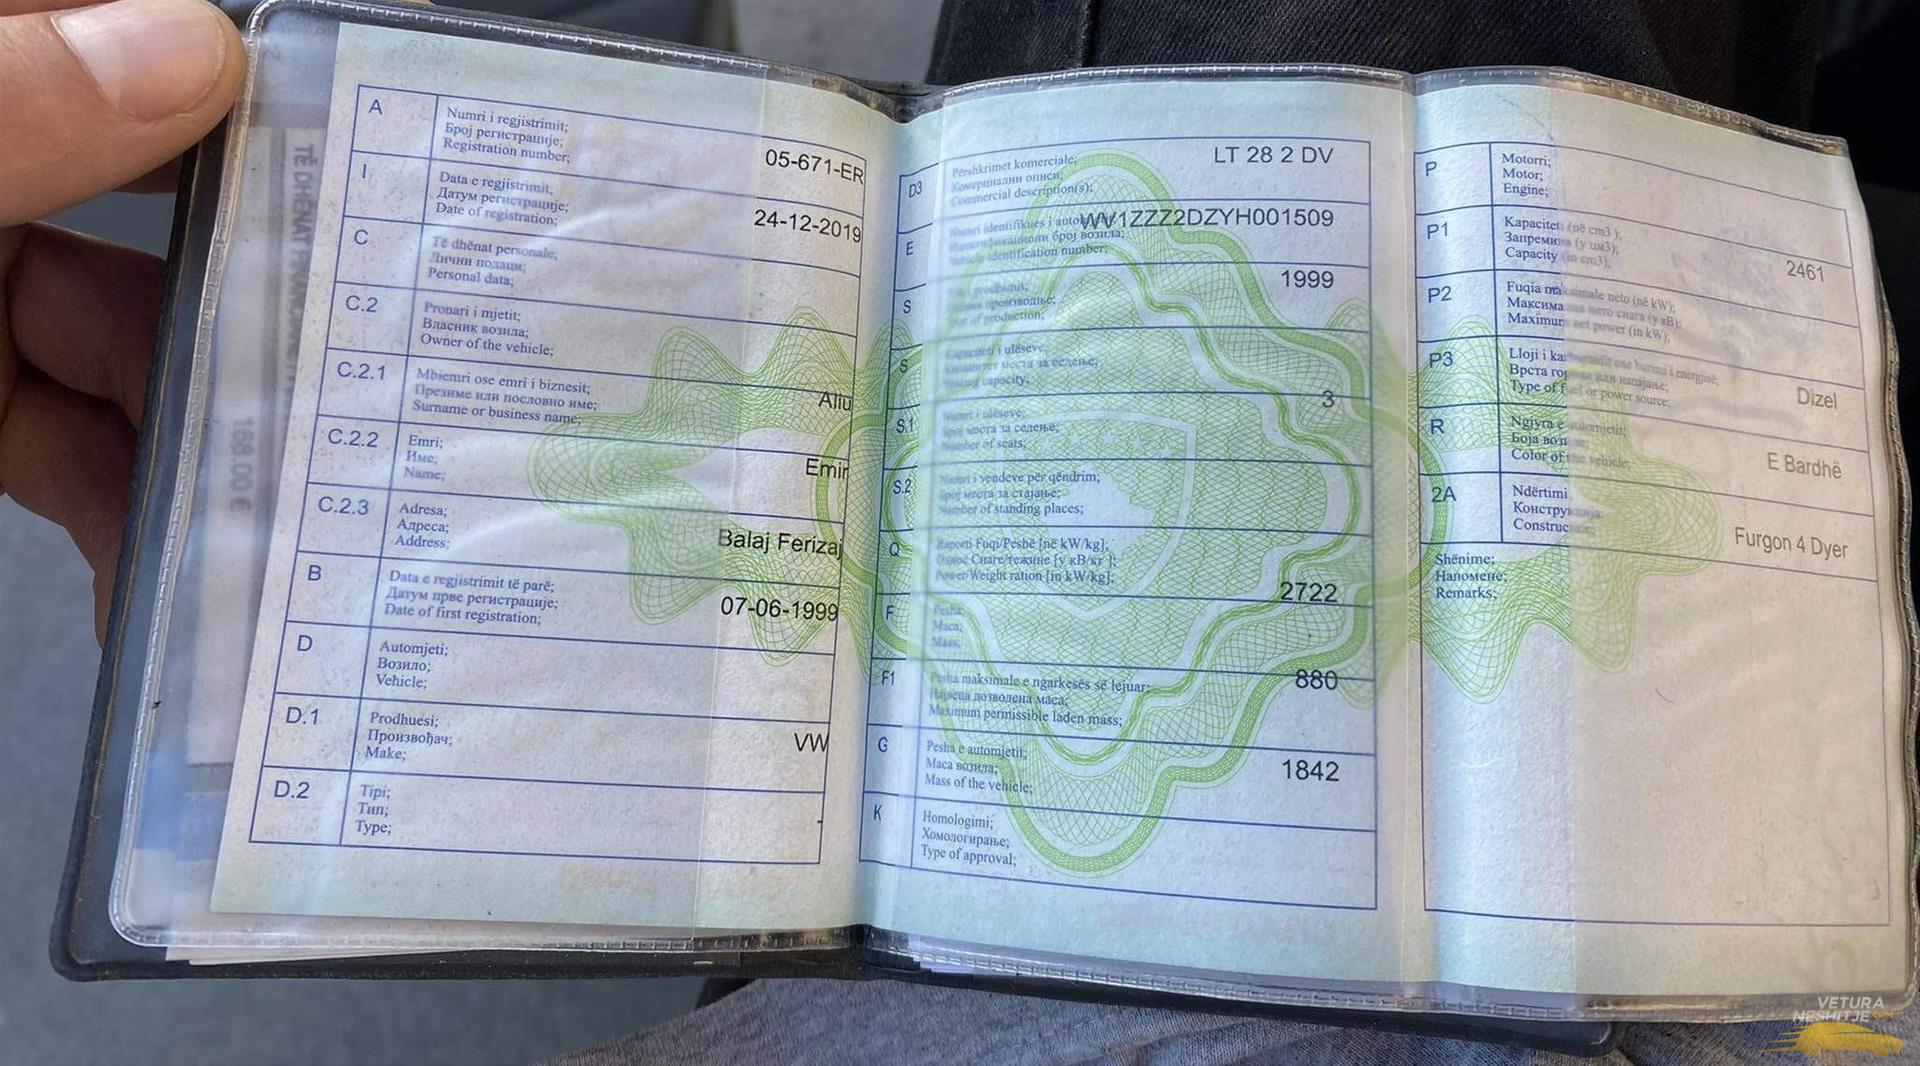 TË DHËNAT
168.00 €
A
Numri i regjistrimit;
Број регистрације;
Registration number;
05-671-ER
I
Data e regjistrimit;
Датум регистрације;
Date of registration;
24-12-2019
C
Të dhënat personale;
Лични подаци;
Personal data;
C.2
Pronari i mjetit;
Власник возила;
Owner of the vehicle;
C.2.1
Mbiemri ose emri i biznesit;
Презиме или пословно име;
Surname or business name;
Aliu
C.2.2
Emri;
Име;
Name;
Emir
C.2.3
Adresa;
Адреса;
Address;
Balaj Ferizaj
B
Data e regjistrimit të parë;
Датум прве регистрације;
Date of first registration;
07-06-1999
D
Automjeti;
Возило;
Vehicle;
D.1
Prodhuesi;
Произвођач;
Make;
VW
D.2
Tipi;
Тип;
Type;
-
D3
Përshkrimet komerciale;
Комерцијални описи;
Commercial description(s);
LT 28 2 DV
E
Numri identifikues i
број возила;
Vehicle identification number;
WV1ZZZ2DZYH001509
S
prodhimit;
производње;
of production;
1999
S
Kapaciteti i ulëseve;
Капацитет места за седење;
Seating capacity;
S.1
Numri i ulëseve;
Број места за седење;
Number of seats;
3
S.2
Numri i vendeve për qëndrim;
Број места за стајање;
Number of standing places;
Q
Raporti Fuqi/Peshë [në kW/kg];
Однос Снаге/тежине [у кВ/кг];
Power/Weight ration [in kW/kg];
2722
F
Pesha;
Маса;
Mass;
F1
Pesha maksimale e ngarkesës së lejuar;
Највећа дозвољена маса;
Maximum permissible laden mass;
880
G
Pesha e automjetit;
Маса возила;
Mass of the vehicle;
1842
K
Homologimi;
Хомологирање;
Type of approval;
P
Motorri;
Мотор;
Engine;
P1
Kapaciteti (në cm3 );
Запремина (у цм3);
Capacity (in cm3);
2461
P2
Fuqia maksimale neto (në kW);
Максимална нето снага (у кВ);
Maximum net power (in kW);
P3
Lloji i karburantit ose burimi i energjisë;
Врста горива или напајање;
Type of fuel or power source;
Dizel
R
Ngjyra e automjetit;
Боја возила;
Color of the vehicle;
E Bardhë
2A
Ndërtimi
Конструкција;
Construction;
Furgon 4 Dyer
Shënime;
Напомене;
Remarks;
VETURA
NESHITJE.COM